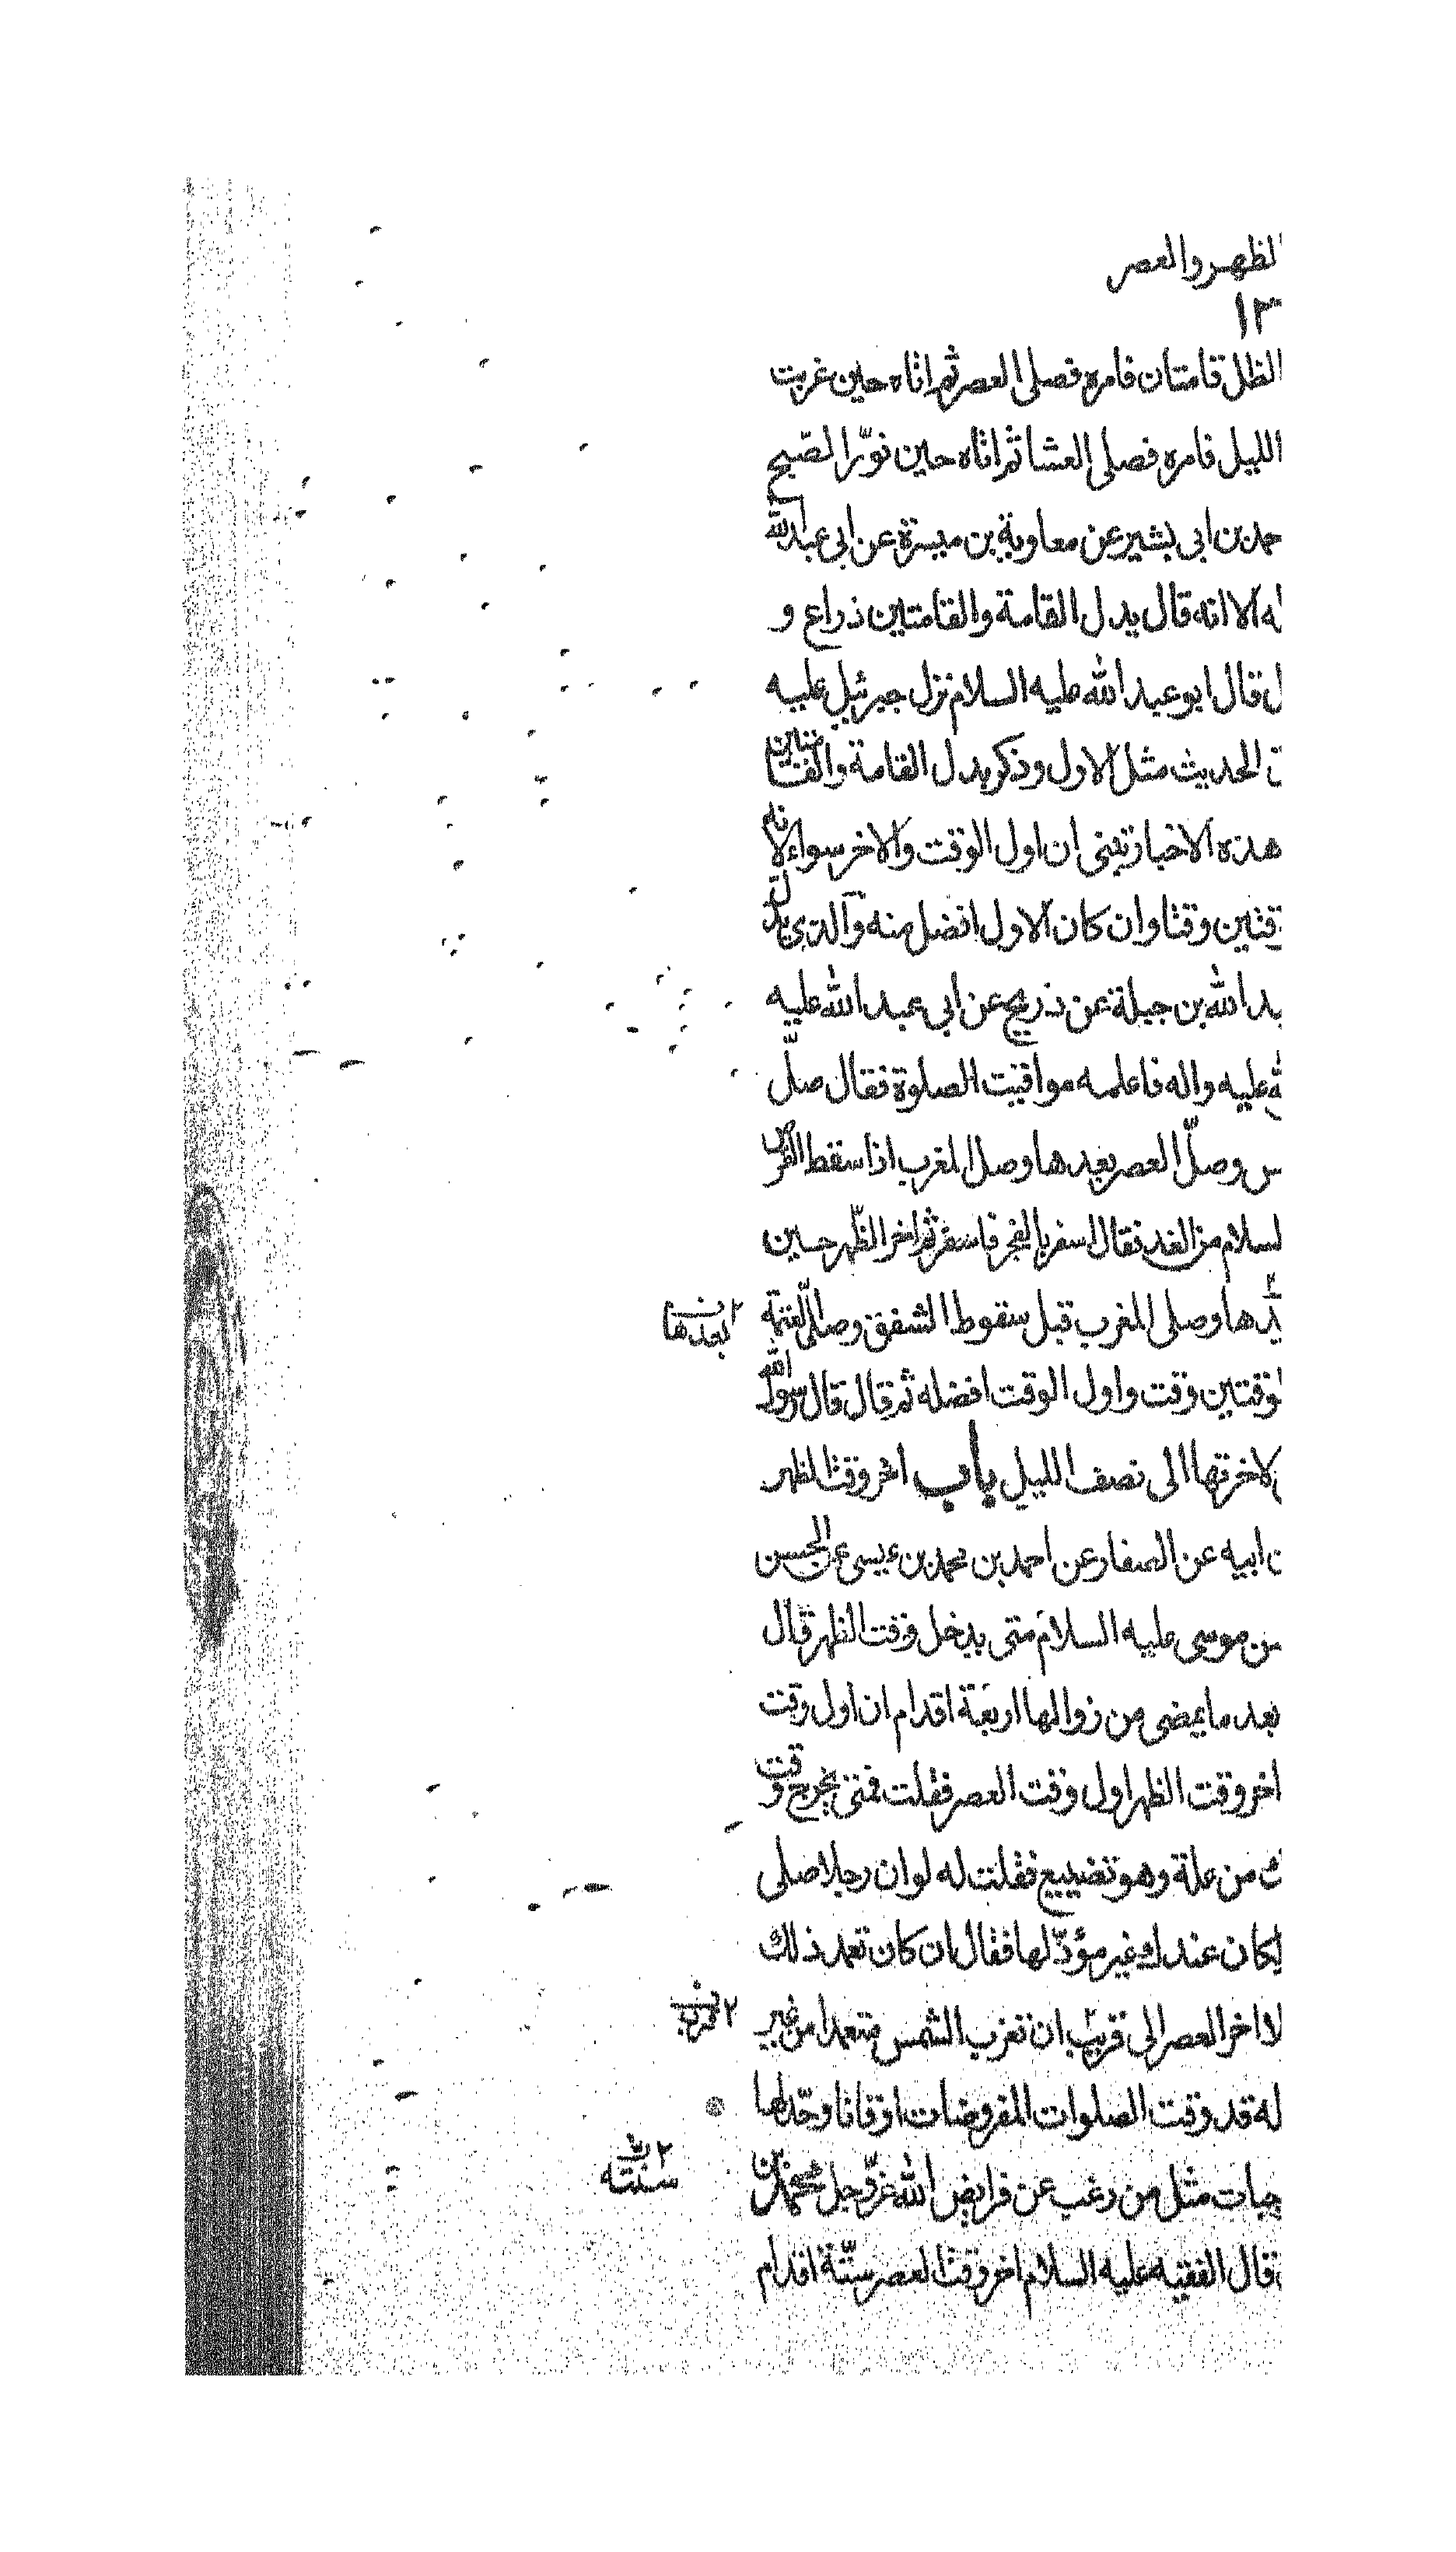 الظهر والعصر
١٣
الظل قامتان فامره فصلى العصر ثم اتاه حين غربت
الليل فامره فصلى العشا ثم اتاه حين نوّر الصّبح
حمد بن ابى بشير عن معاوية بن ميسرة عن ابى عبدالله
له الا انه قال بدل القامة والقامتين ذراع و
ل قال ابو عبد الله عليه السلام نزل جبرئيل عليه
الحديث مثل الاول وذكر بدل القامة والقامتين
هذه الاخبار تبنى ان اول الوقت والاخر سواء لانه
قتين وقتا وان كان الاول افضل منه والذى يدل
بد الله بن جبلة عن ذريح عن ابى عبد الله عليه
عليه واله فاعلمه مواقيت الصلوة فقال صلّ
س وصلّ العصر بعدها وصل المغرب اذا سقط القرص
لسلام من الغد فقال اسفر بالفجر فاسفر ثم اخر الظّهر حين
بعدها وصلى المغرب قبل سقوط الشفق وصلى العتمة
٢ بعدها
لوقتين وقت واول الوقت افضله ثم قال قال رسول الله
لاخرتها الى نصف الليل باب اخر وقت الظهر
ن ابيه عن الصفار عن احمد بن محمد بن عيسى عن الحسن
بن موسى عليه السلام متى يدخل وقت الظهر قال
بعد ما يمضى من زوالها اربعة اقدام ان اول وقت
اخر وقت الظهر اول وقت العصر فقلت فمتى يخرج وقت
من علة وهو تضييع فقلت له لو ان رجلا صلى
كان عندك غير مؤدّ لها فقال ان كان تعمد ذلك
لا اخر العصر الى قريب ان تغرب الشمس متعمدا من غير
٢ قرب
له قد وقت الصلوات المفروضات اوقاتا وحدّ لها
جبات مثل من رغب عن فرايض الله عزّ وجل محمد بن
٢ سنته
قال الفقيه عليه السلام اخر وقت العصر ستّة اقدام